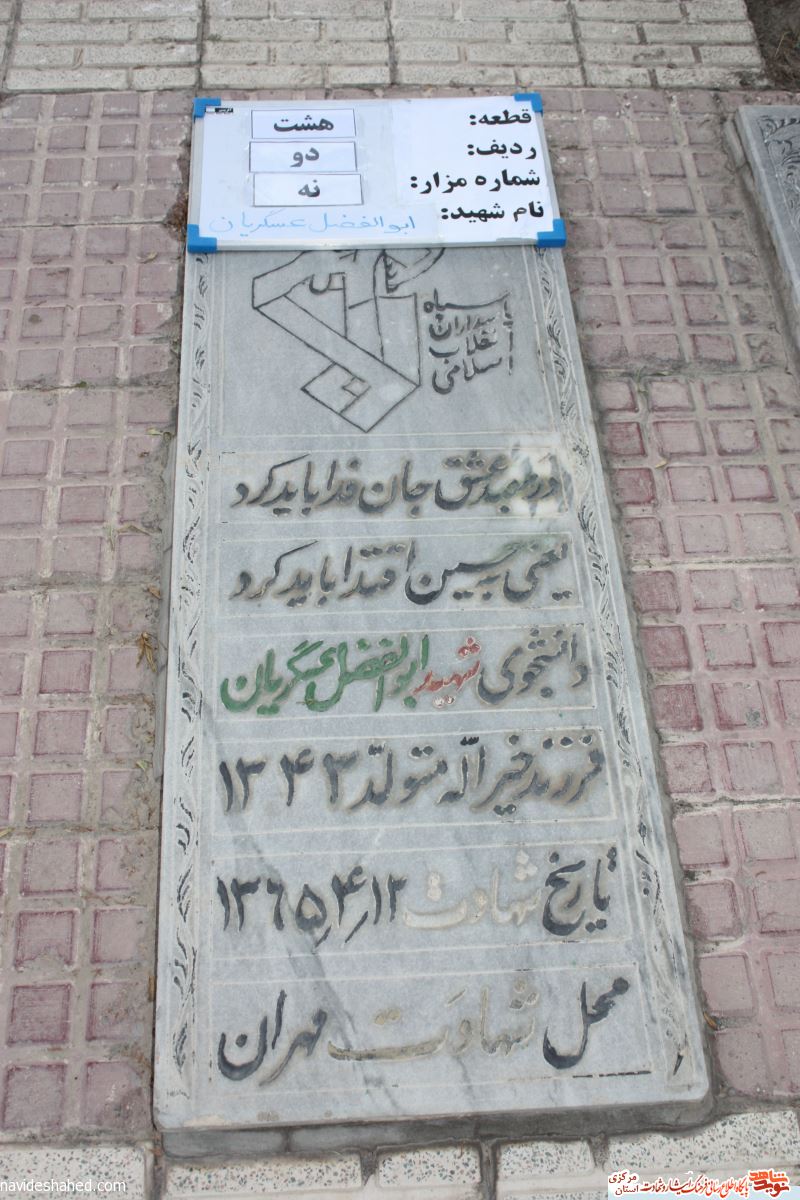 قطعه: هشت
ردیف: دو
شماره مزار: نه
نام شهید: ابوالفضل عسگریان
سپاه
پاسداران
انقلاب
اسلامی
در معبد عشق جان فدا باید کرد
یعنی به حسین اقتدا باید کرد
دانشجوی شهید ابوالفضل عسگریان
فرزند خیراله متولد ۱۳۴۳
تاریخ شهادت ۱۳۶۵٫۴٫۱۲
محل شهادت مهران
navideshahed.com
نوید شاهد
پایگاه اطلاع رسانی فرهنگ ایثار و شهادت
استان مرکزی